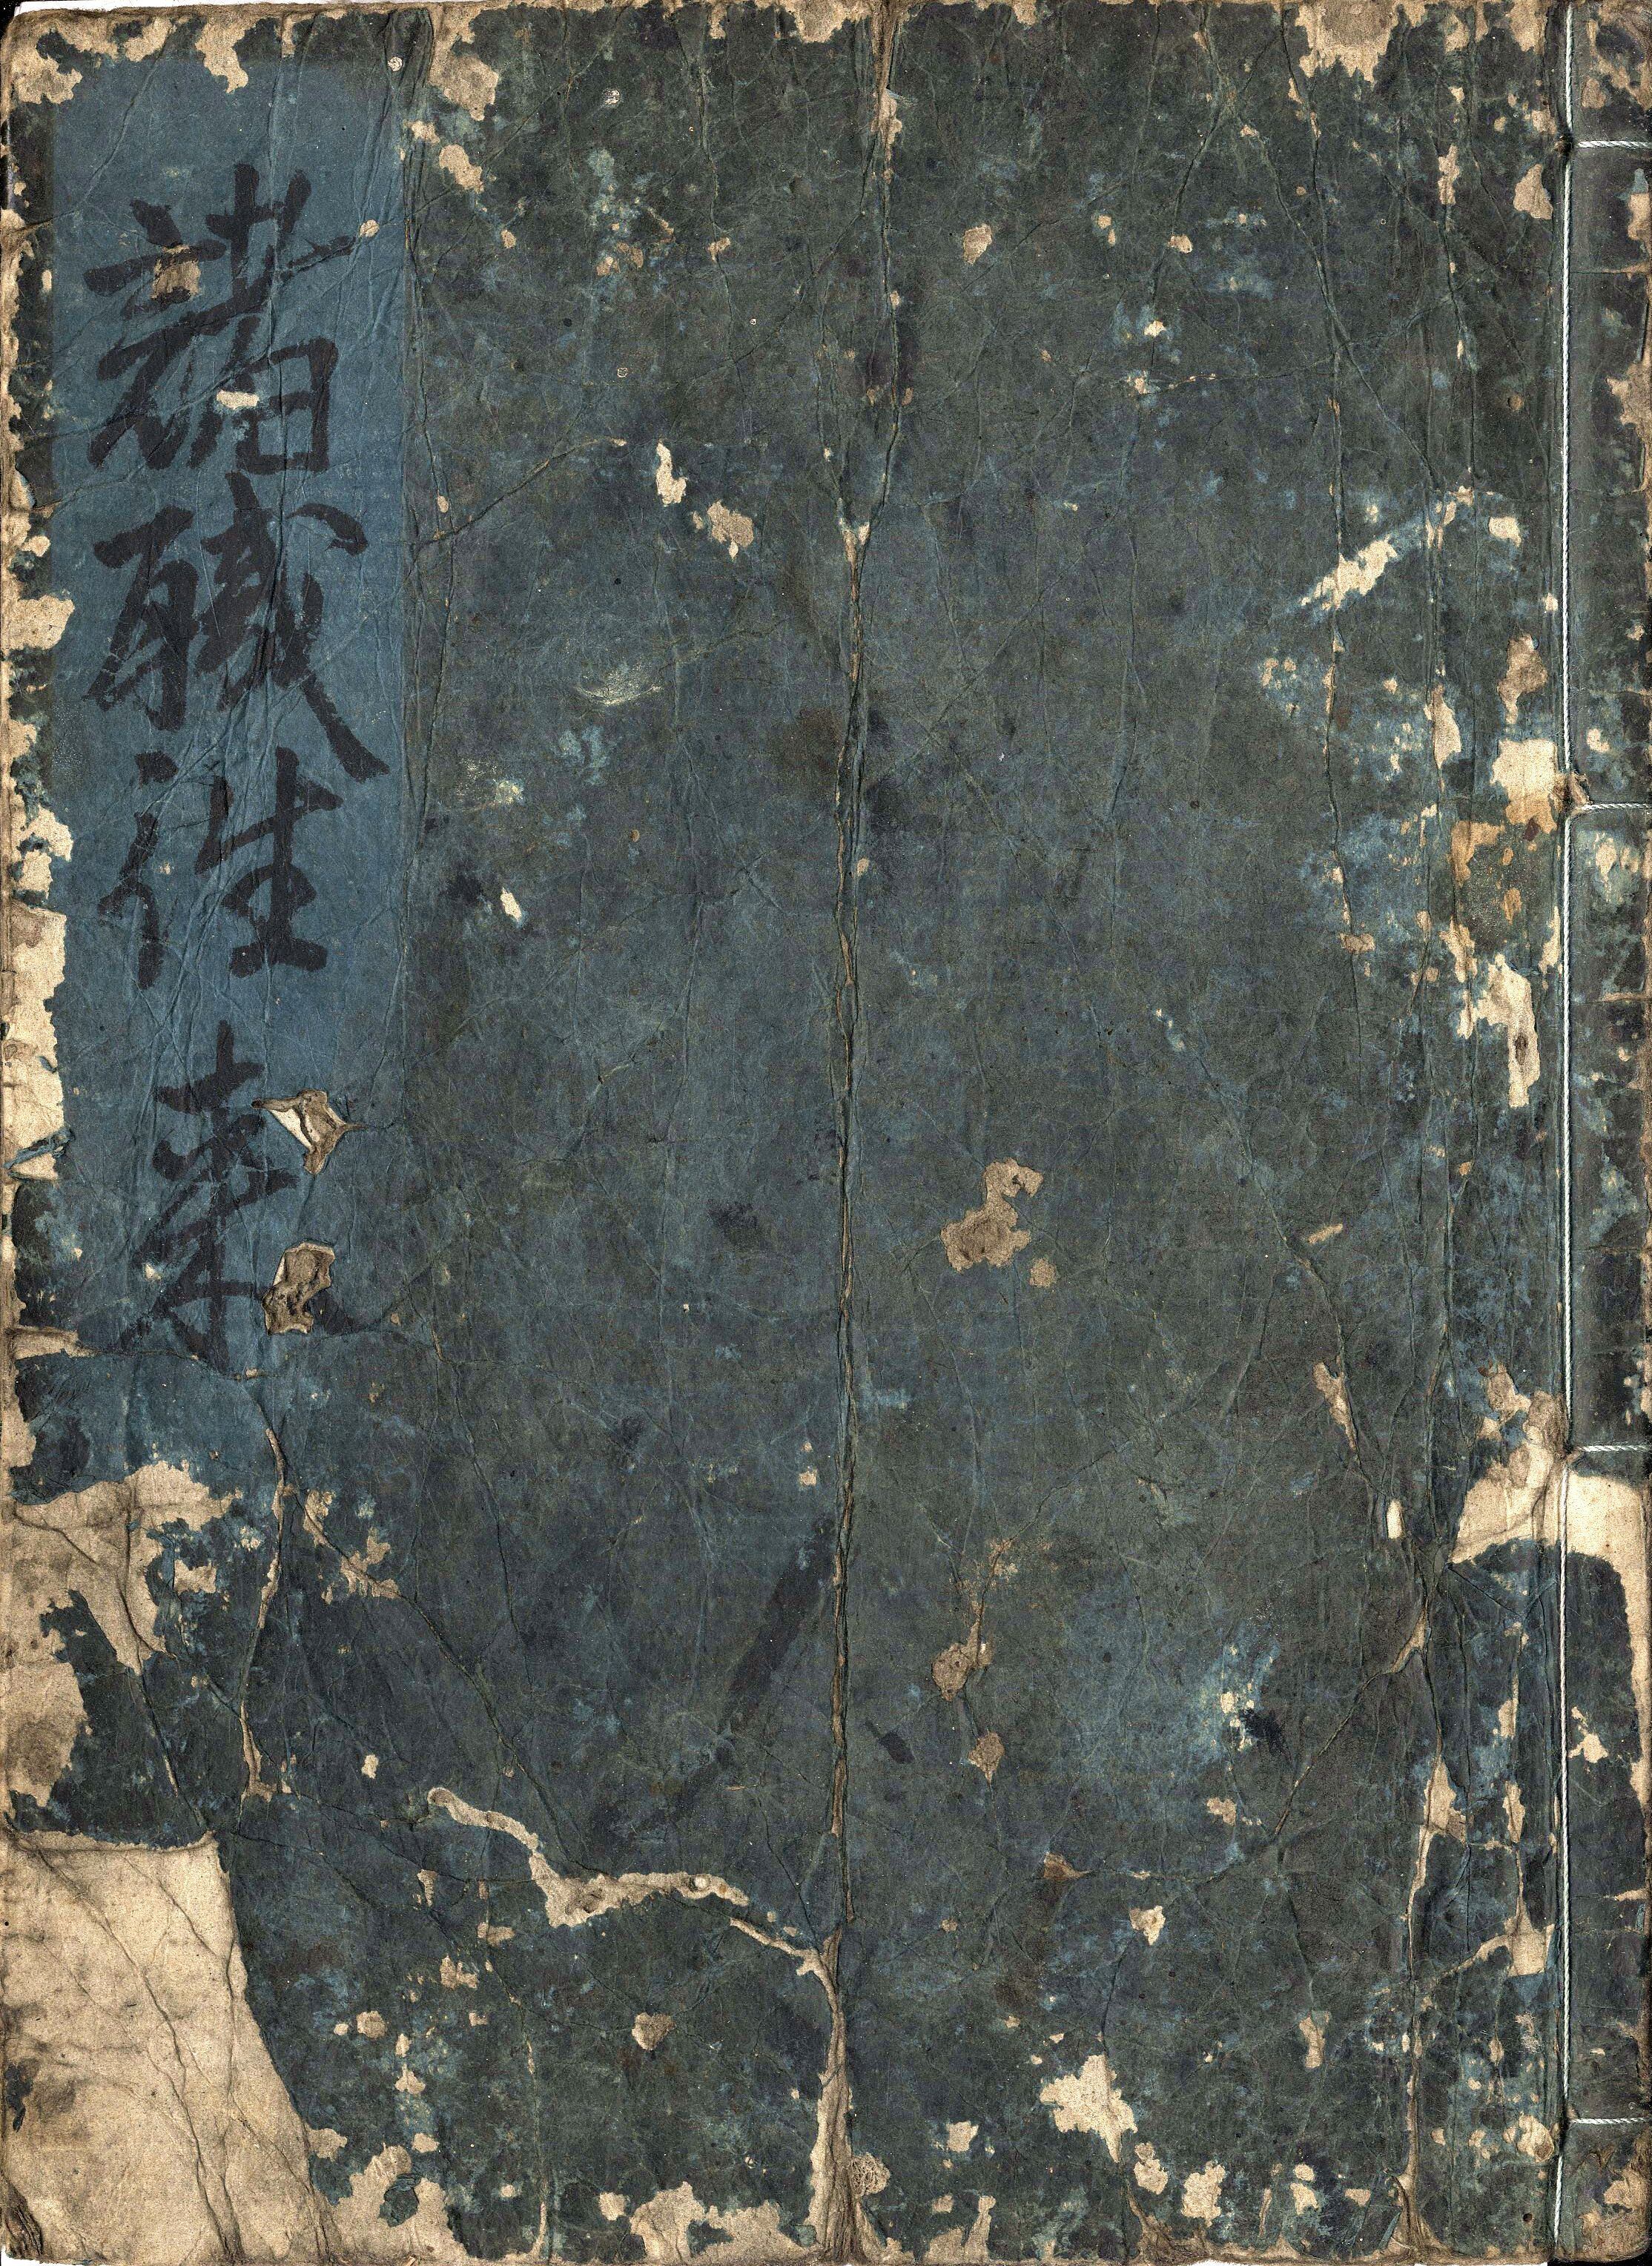 諸職往来